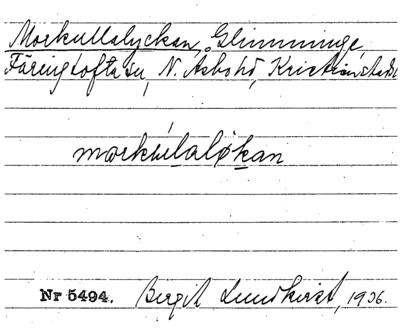 Morkullalyckan, Glimminge,
Färingtofta sn, N. Åsbo hd, Kristianstads
morkúlalø̨kan
Nr 5494. Birgit Lundkvist, 1936.